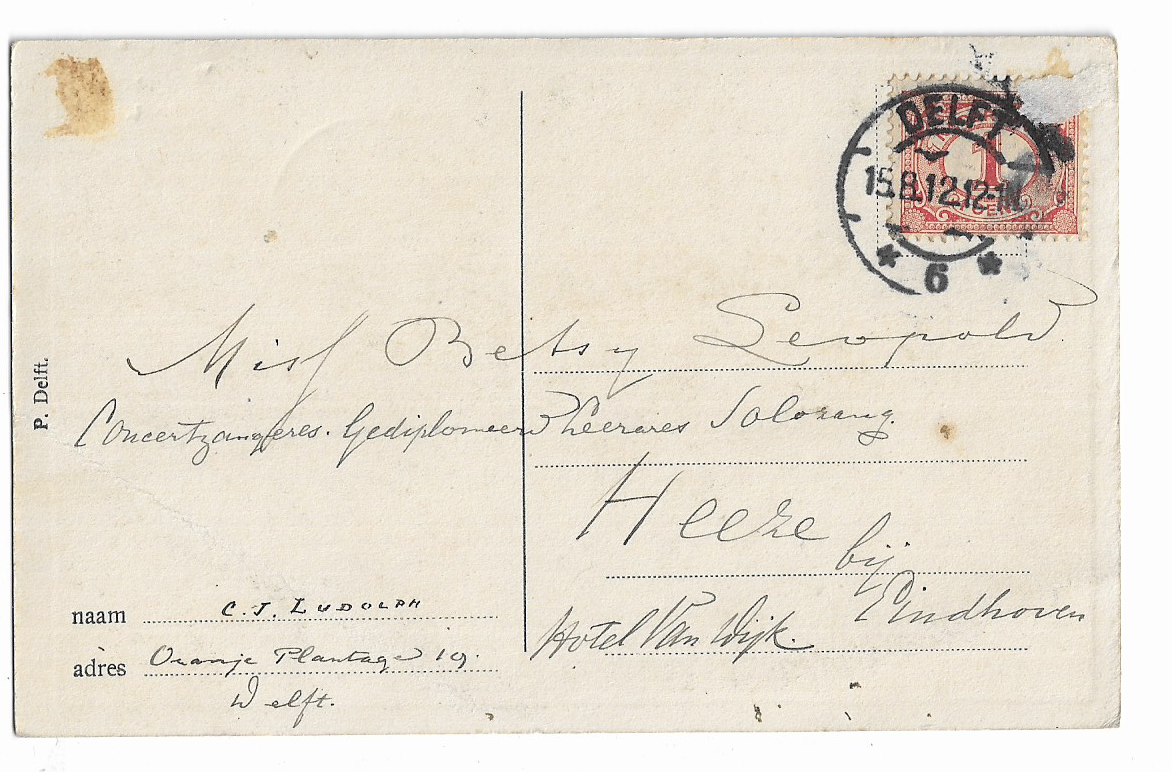 DELFT
15.8.12.12-1N
1
CENT
6
P. Delft.
Miss Betsy Leopold.
Concertzangeres. Gediplomeerd Leerares Solozang.
Heeze
bij
Eindhoven
Hotel Van Wijk.
naam C. J. LUDOLPH
adres Oranje Plantage 19.
Delft.